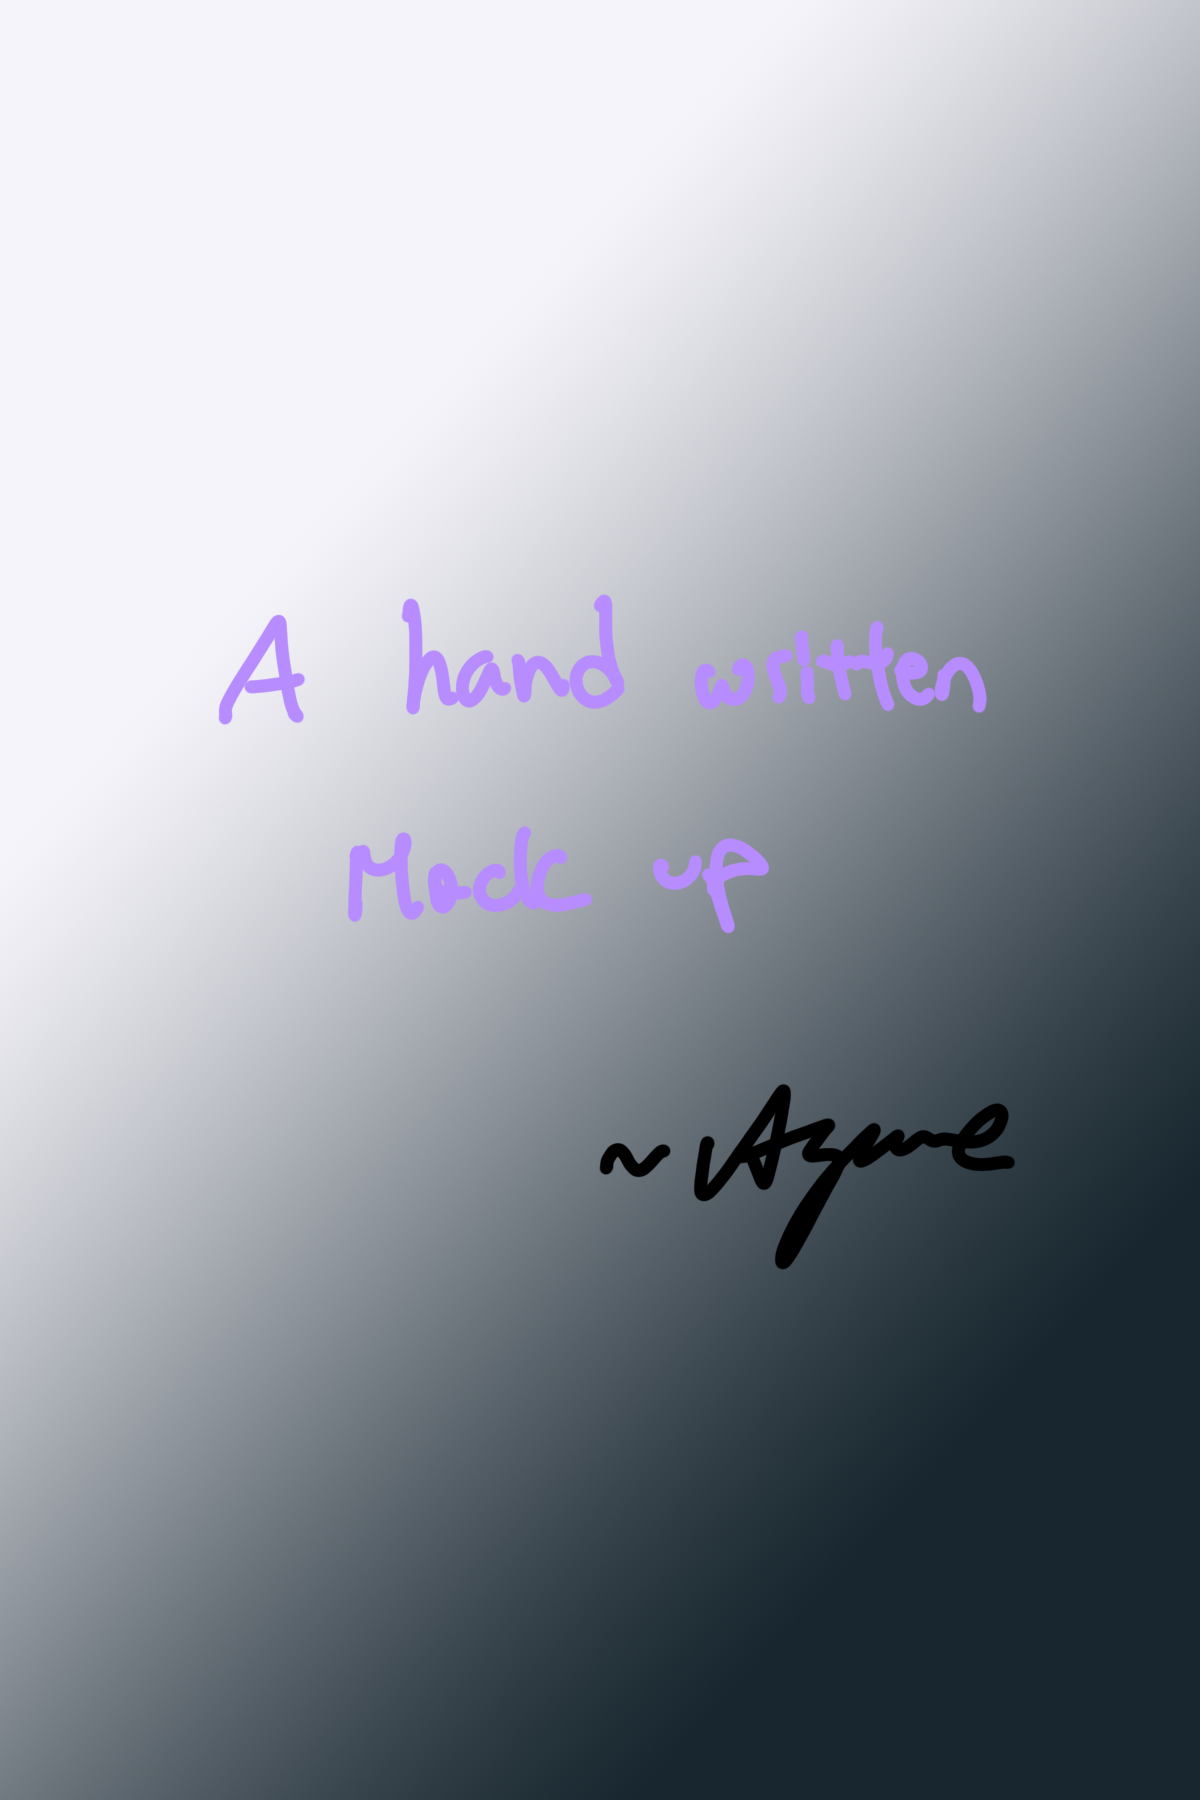 A hand written
Mock up
~ Azure